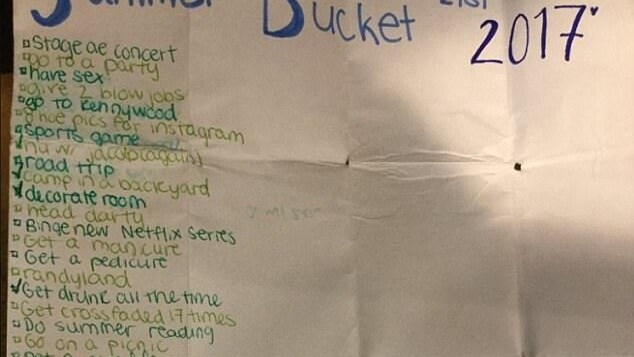 Summer Bucket List
2017
stage ae concert
go to a party
have sex
give 2 blow jobs
go to kennywood
shoe pics for instagram
sports game
w/ jacob (again)
road trip
camp in a backyard
decorate room
head darty
Binge new Netflix series
Get a manicure
Get a pedicure
randyland
Get drunk all the time
Get crossfaded 17 times
Do summer reading
Go on a picnic